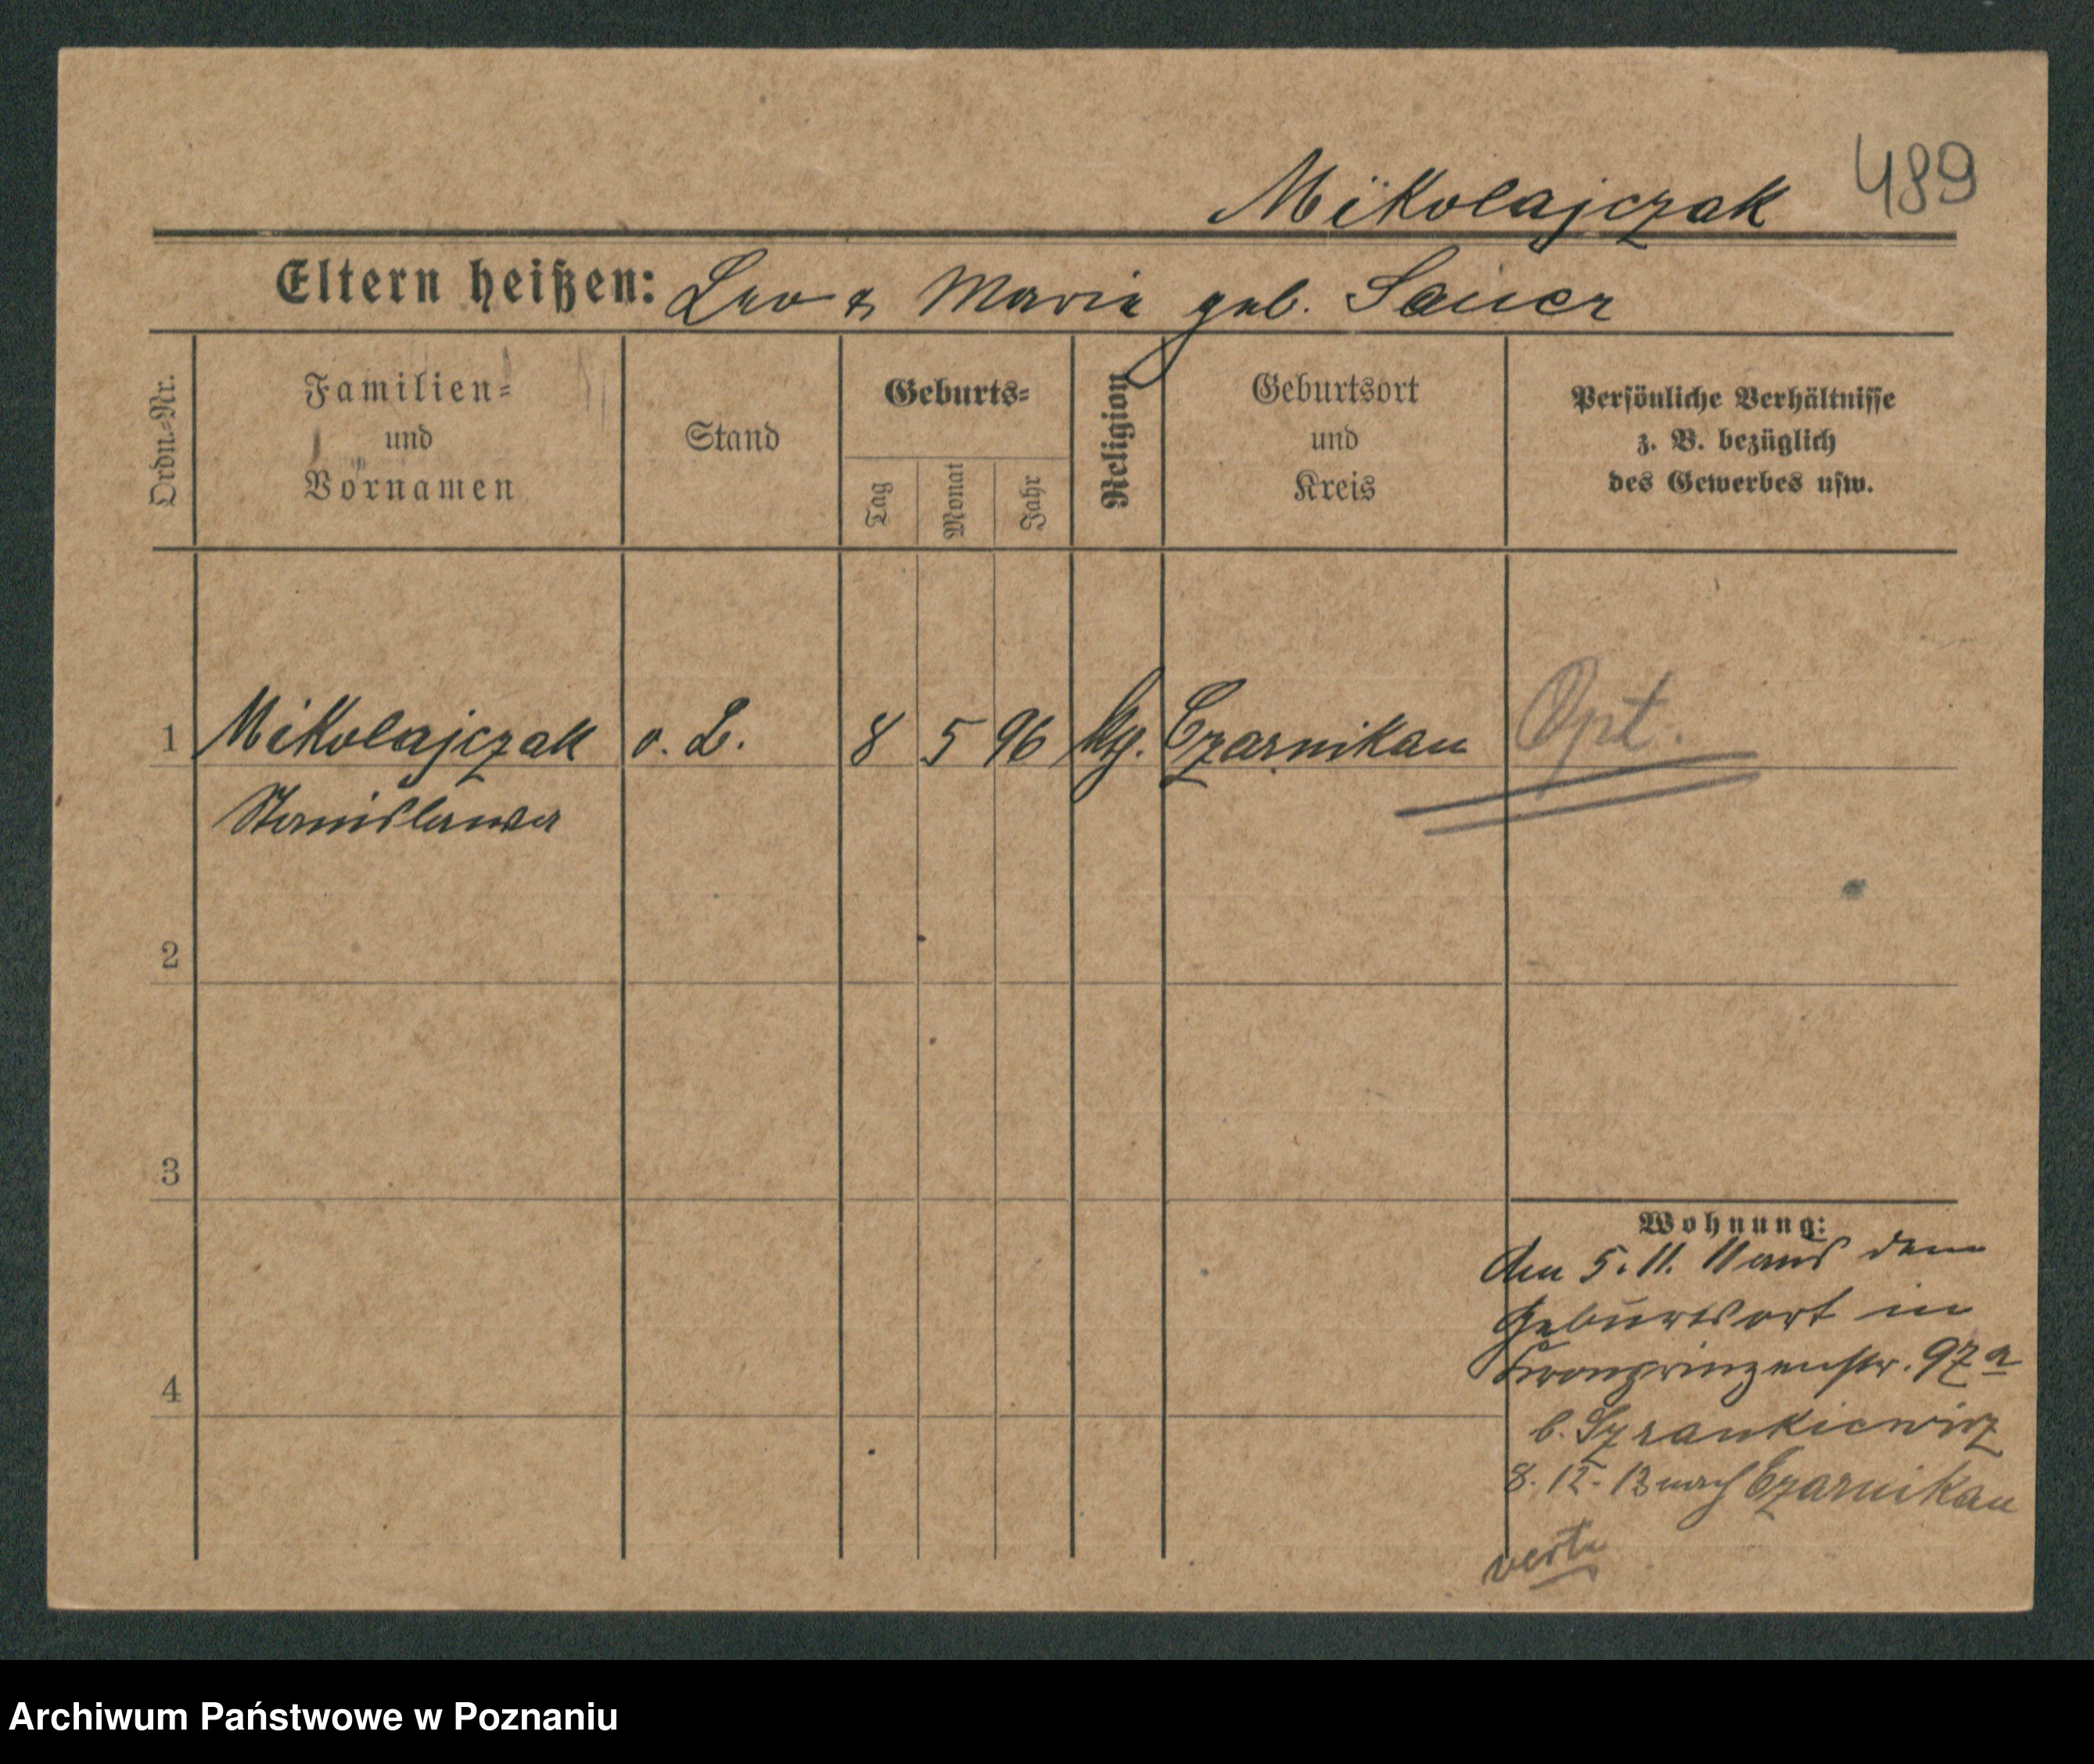 489
Mikolajczak
Eltern heißen: Leo & Maria geb. Sauer
Ordn.-Nr.
Familien-
und
Vornamen
Stand
Geburts-
Tag
Monat
Jahr
Religion
Geburtsort
und
Kreis
Persönliche Verhältnisse
z. B. bezüglich
des Gewerbes usw.
1 Mikolajczak o. B. 8 5 96 kg. Czarnikau Opt.
Stanislawa
2
3
4
Wohnung:
Am 5. 11. 11 aus dem
Geburtsort in
Kronprinzenstr. 97a
b.
8. 12. 13 nach Czarnikau
verte
Archiwum Państwowe w Poznaniu